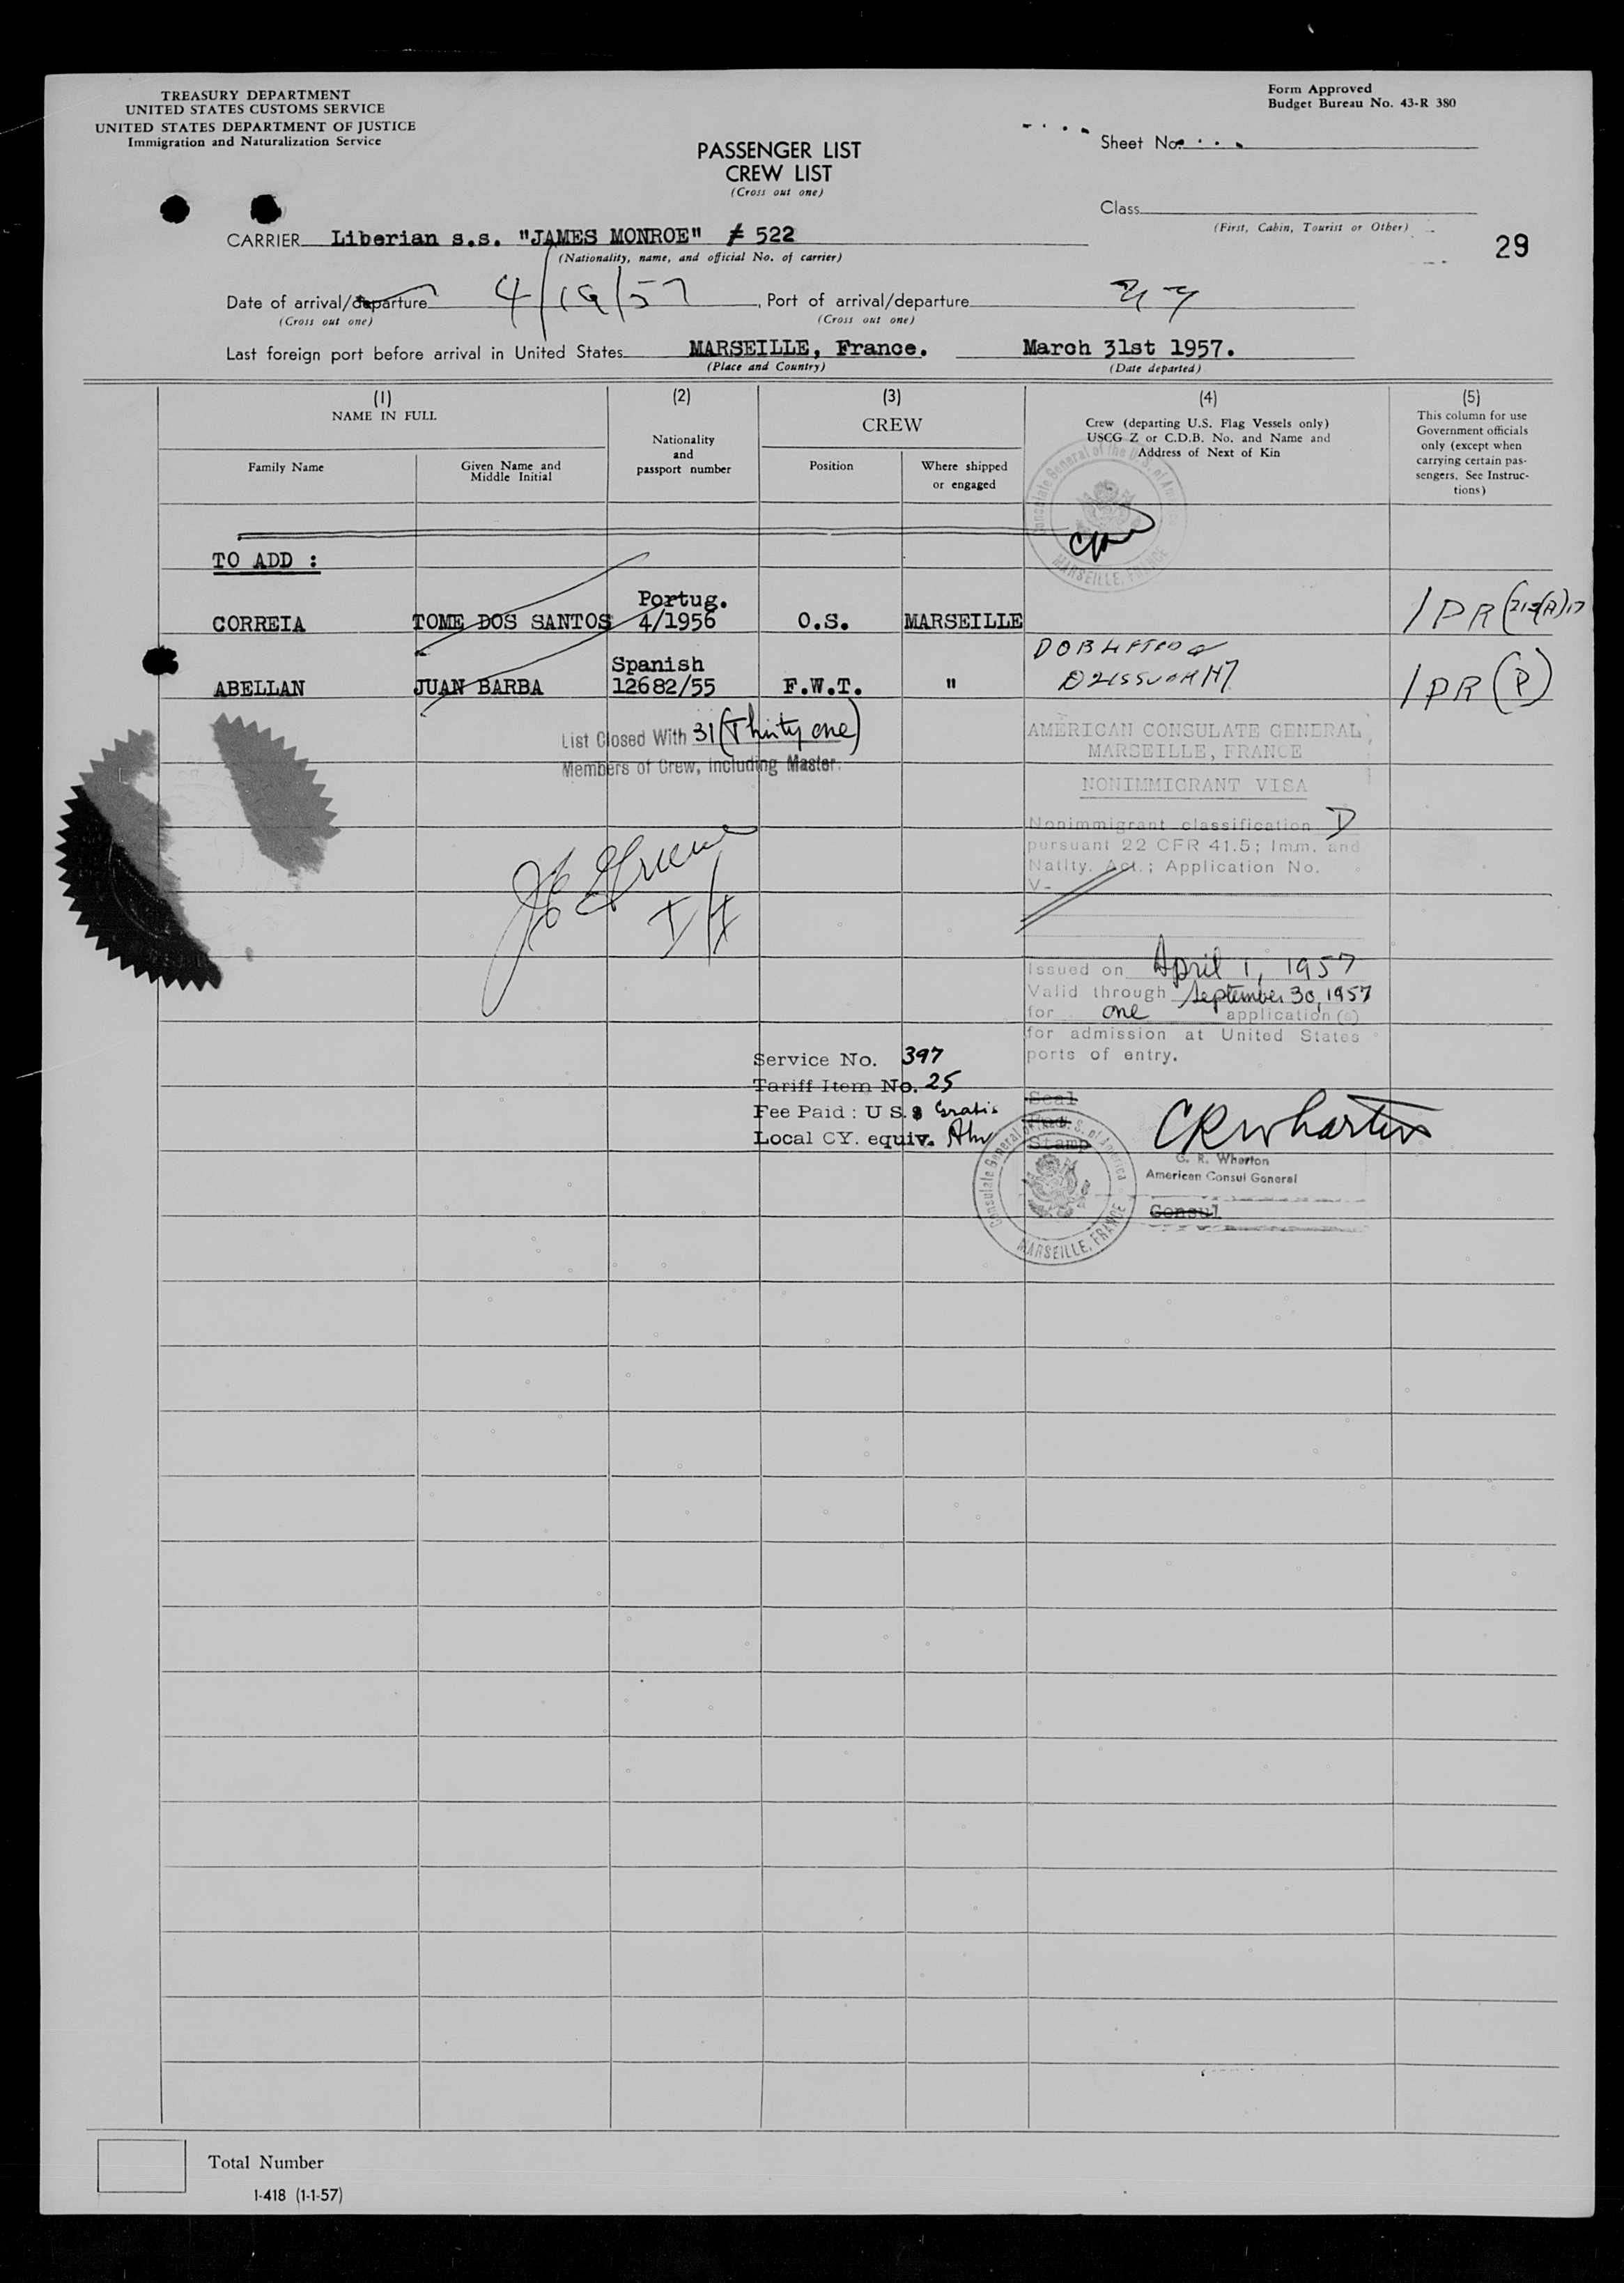 TREASURY DEPARTMENT
UNITED STATES CUSTOMS SERVICE
UNITED STATES DEPARTMENT OF JUSTICE
Immigration and Naturalization Service
Form Approved
Budget Bureau No. 43-R 380
PASSENGER LIST
CREW LIST
(Cross out one)
Sheet No.
Class
(First, Cabin, Tourist or Other)
29
CARRIER Liberian s.s. "JAMES MONROE" # 522
(Nationality, name, and official No. of carrier)
Date of arrival/departure 4/19/57, Port of arrival/departure NY
(Cross out one) (Cross out one)
Last foreign port before arrival in United States MARSEILLE, France. March 31st 1957.
(Place and Country) (Date departed)
(1)
NAME IN FULL
Family Name
Given Name and
Middle Initial
(2)
Nationality
and
passport number
(3)
CREW
Position
Where shipped
or engaged
(4)
Crew (departing U.S. Flag Vessels only)
USCG Z or C.D.B. No. and Name and
Address of Next of Kin
(5)
This column for use
Government officials
only (except when
carrying certain pas-
sengers. See Instruc-
tions)
Consulate General of the U.S. of America
MARSEILLE, FRANCE
TO ADD :
Portug.
CORREIA TOME DOS SANTOS 4/1956 O.S. MARSEILLE 1 PR
Spanish
ABELLAN JUAN BARBA 12682/55 F.W.T. " 1 PR (P)
List Closed With 31 (Thirty one)
Members of Crew, Including Master.
AMERICAN CONSULATE GENERAL
MARSEILLE, FRANCE
NONIMMIGRANT VISA
Nonimmigrant classification D
pursuant 22 CFR 41.5; Imm. and
Natlty. Act.; Application No.
V-
Issued on April 1, 1957
Valid through September 30, 1957
for one application(s)
for admission at United States
ports of entry.
Service No. 397
Tariff Item No. 25
Fee Paid: U S.$ Gratis
Local CY. equiv.
Seal
Stamp
Consulate General of the U.S. of America
MARSEILLE, FRANCE
CRWharton
C. R. Wharton
American Consul General
Consul
Total Number
I-418 (1-1-57)